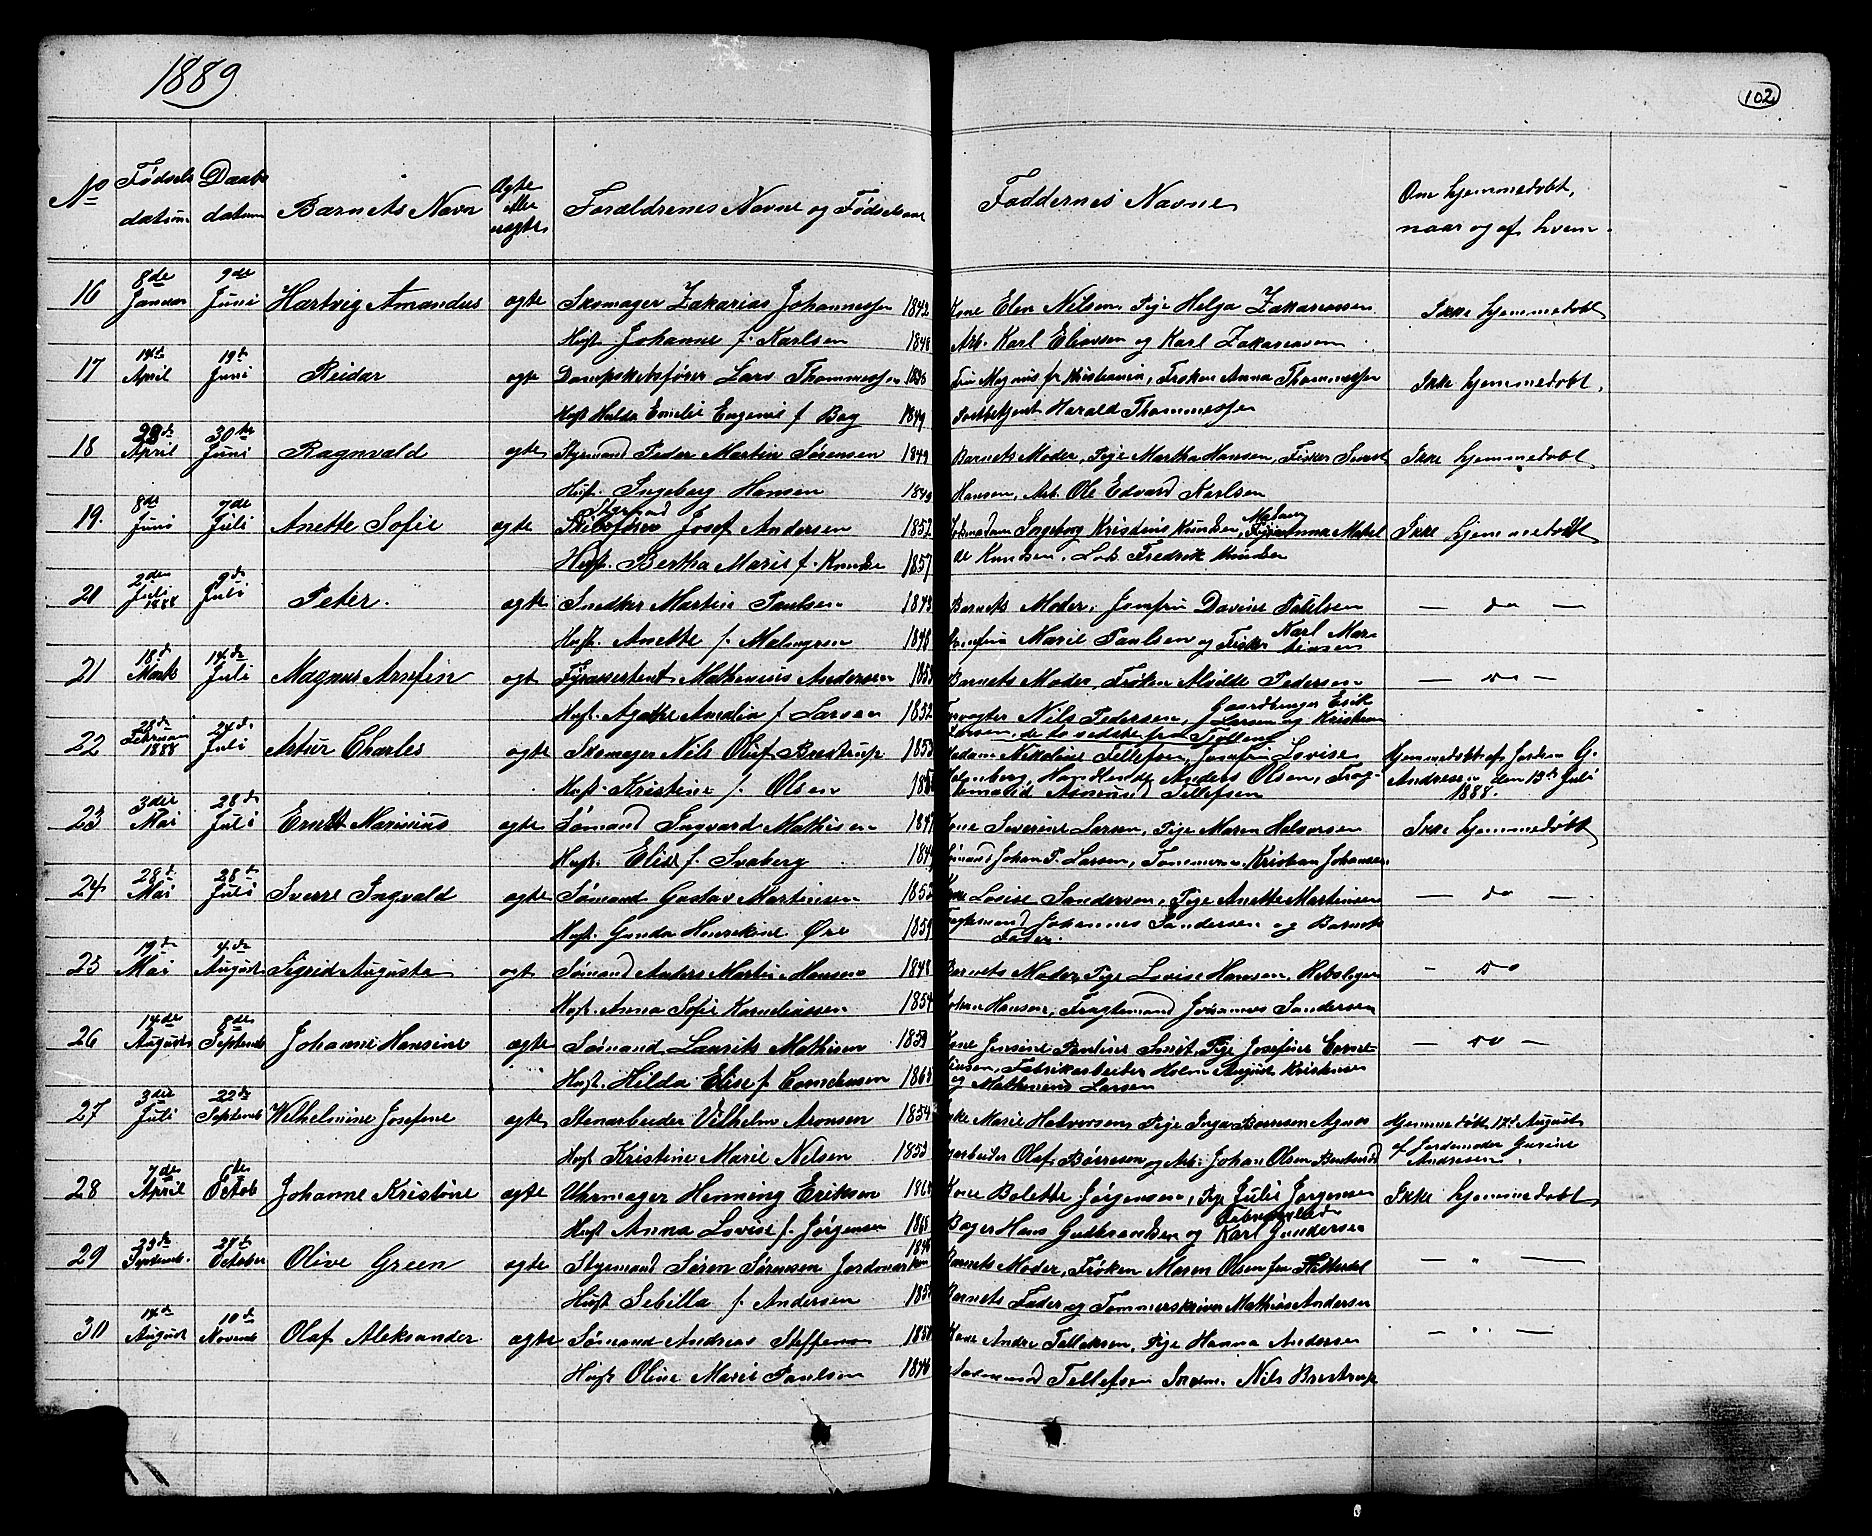 1889
102
No Fødsels datum Daabs datum Barnets Navn Ægte eller uægte Forældrenes Navne og Fødselsaar Faddernes Navne Om hjemmedøbt, naar og af hvem
16 8de Januar 9de Juni Hartvig Amandus ægte Skomager Zakarias Johannessen 1842 Kone Elen Nilsen, Pige Helga Zakariassen Ikke hjemmedøbt
Hust. Johanne f. Karlsen 1848 Arb. Karl Eliassen og Karl Zakariassen
17 14de April 19de Juni Reidar ægte Dampskibsfører Lars Thommessen Fru Magnus fra Kristiania, Frøken Anna Thommessen Ikke hjemmedøbt
Hust Hulda Emelie Eugenie f Bay 1849 Harald Thommessen
18 April 30te Juni Ragnvald ægte Styrmand Peder Martin Sørensen 1849 Barnets Moder, Pige Martha Hansen, Fisker Ikke hjemmedøbt
Hust. Ingeborg Hansen 1849 Hansen, Arb. Ole Edvard Karlsen
19. 8de Juni 7de Juli Anette Sofie ægte Styrmand Josef Andersen 1852 Ingeborg Kristine Knudsen, Madam Anna Ikke hjemmedøbt
Hust. Bertha Marie f. Knudsen 1857 Knudsen, Lods Fredrik Knudsen
20 2den Juli 1888 9de Juli Peter. ægte Snedker Martin Paulsen 1843 Barnets Moder, Jomfru Davine Paulsen — do —
Hust. Anette f. Malmgren 1848 Jomfru Marie Paulsen og Fisker Karl Martinsen
21 18de Marts 14de Juli Magnus Arnfin ægt Fyrassistent Mathenius Andersen 1853 Barnets Moder, Frøken Alvilde Pedersen — do —
Hust. Agathe Amalia f. Larsen 1852 Nils Pedersen, Gaardbruger Erik Larsen og Kristian
Larsen, de to sidste fra Fjelløen
22 28de Februar 1888 24de Juli Artur Charles ægte Skomager Nils Oluf Brestrup 1853 Madam Nikoline Tellefsen, Jomfru Lovise Hjemmedøbt af Jordem G.
Hust. Kristine f. Olsen Anders Olsen, Frag- Andresen den 13de Juli
temand Asmund Tellefsen 1888.
23 3die Mai 28de Juli Ernst Marinius ægte Sømand Ingvard Mathisen Kone Severine Larsen, Pige Maren Halvorsen Ikke hjemmedøbt
Hust. Elise f. Svaberg Sømand Johan P. Larsen, Tømmerm. Kristian Johansen
24 28de Mai 28de Juli Sverre Ingvald ægte Sømand Gustav Martinsen 1852 Kone Lovise Sandersen, Pige Anette Martinsen — do —
Hust. Gunda Henrikine Øre 1859 Fragtemand Johannes Sandersen og Barnets Fader.
25 19de Mai 4de August Sigrid Augusta ægt Sømand Anders Martin Hansen 1848 Barnets Moder, Pige Lovise Hansen, Rebslager — do
Hust. Anna Sofie Korneliussen 1854 Johan Hansen, Fragtemand Johannes Sandersen
26 14de August 8de Septemb Johanne Hansine ægte Sømand Laurits Mathisen 1859 Kone Jensine Pauline Smit, Pige Josefine Corne- — do —
Hust. Hilda Elise f. Corneliusen 1865 liusen, Fabrikarbeider August Kristensen
og Mathenius Larsen
27 3die Juli 22de Septemb Wilhelmine Josefine ægte Stenarbeider Vilhelm Aronsen 1854 Enke Marie Halvorsen, Pige Inga Børresen Agnes Hjemmedøbt 17de August
Hust Kristine Marie Nilsen 1853 Olaf Børresen og Arb. Johan Olsen af Jordemoder Gurine Andresen.
28 7de April 6te Octob Johanne Kristine ægte Uhrmager Henning Eriksen Kone Bolette Jørgensen, Pige Julie Jørgensen Ikke hjemmedøbt
Hust Anna Lovise f. Jørgensen 1868 Bager Hans Gudbrandsen og Karl Gundersen
29 23de Septemb. 27de October Olive Green ægte Styrmand Søren Sørensen 1846 Barnets Moder, Frøken Maren Olsen fra — " —
Hust Sebilla f. Andersen Barnets Fader og Tømmerskriver Mathias Andersen
30 14de August 10de Novemb Olaf Aleksander ægte Sømand Andreas Steffensen Kone Andrea Tellefsen, Pige Hanna Andersen — " —
Hust Oline Marie Paulsen 1846 Asmund Tellefsen Skom. Nils Brestrup